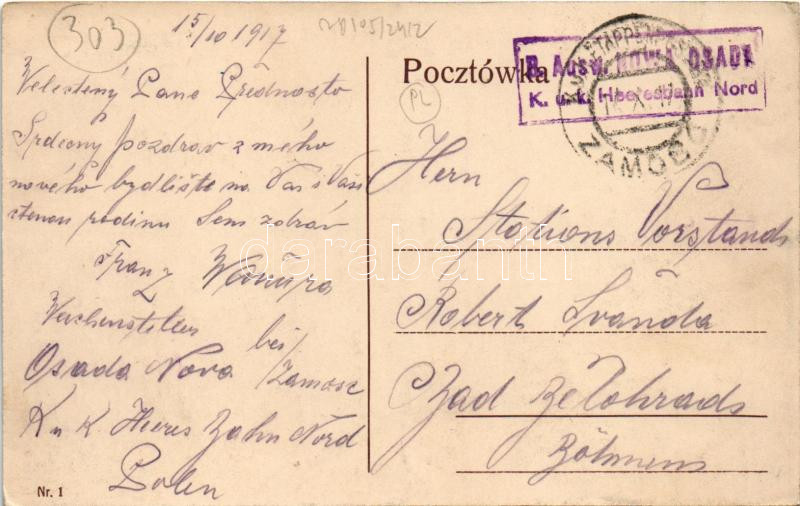 303
15/10 1917
20105/2412
Pocztówka
B. Ausw. NOWA OSADA
K. u. k. Heeresbahn Nord
ZAMOŚĆ
PL
Velectěný Pane Přednosto
Srdečný pozdrav z mého
nového bydliště na Vás i Vaši
ctenou rodinu Sem zdráv
Franz
Wachensteller
Osada Nova bei Zamosc
K u K. Heeres Bahn Nord
Polen
Nr. 1
Herrn
Stations Vorstands
Robert Švanda
Bad Bělohrads
Böhmens
darabanth